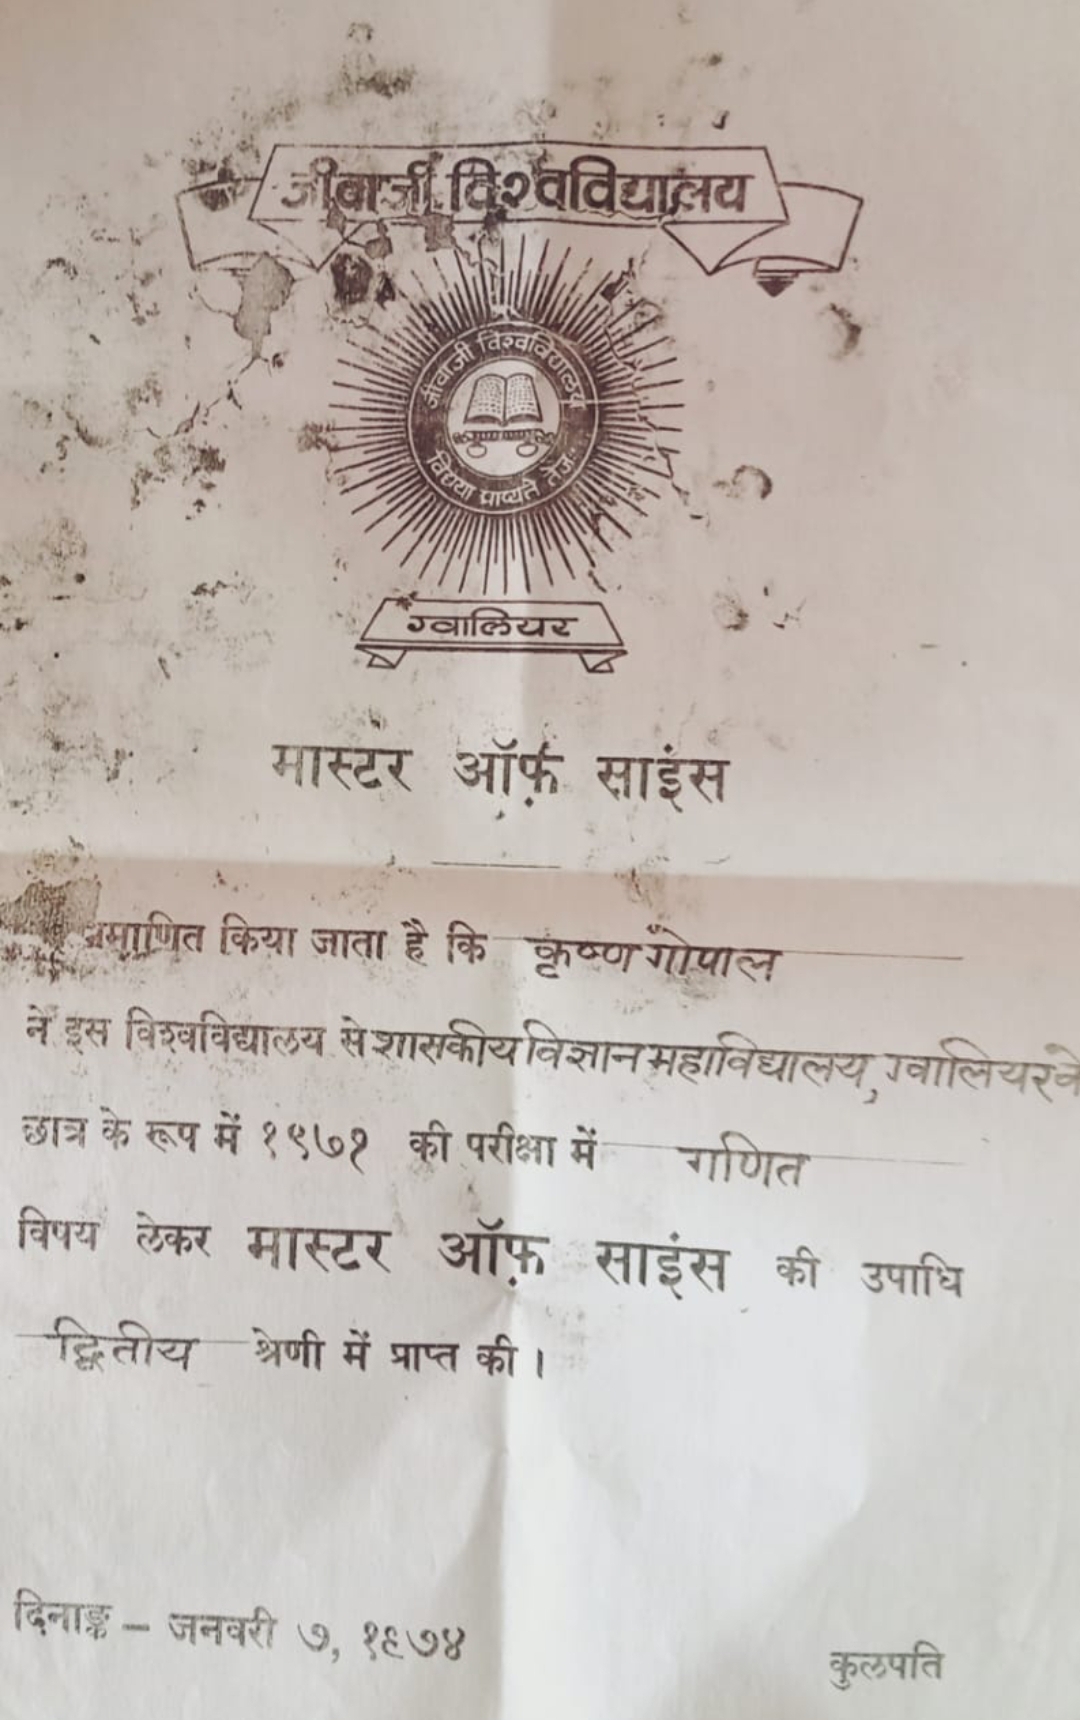 जीवाजी विश्वविद्यालय
जीवाजी विश्वविद्यालय
विद्यया प्राप्यते तेजः
ग्वालियर
मास्टर ऑफ़ साइंस
प्रमाणित किया जाता है कि कृष्ण गोपाल
ने इस विश्वविद्यालय से शासकीय विज्ञान महाविद्यालय, ग्वालियर के
छात्र के रूप में १९७१ की परीक्षा में गणित
विषय लेकर मास्टर ऑफ़ साइंस की उपाधि
द्वितीय श्रेणी में प्राप्त की।
दिनाङ्क – जनवरी ७, १९७४
कुलपति